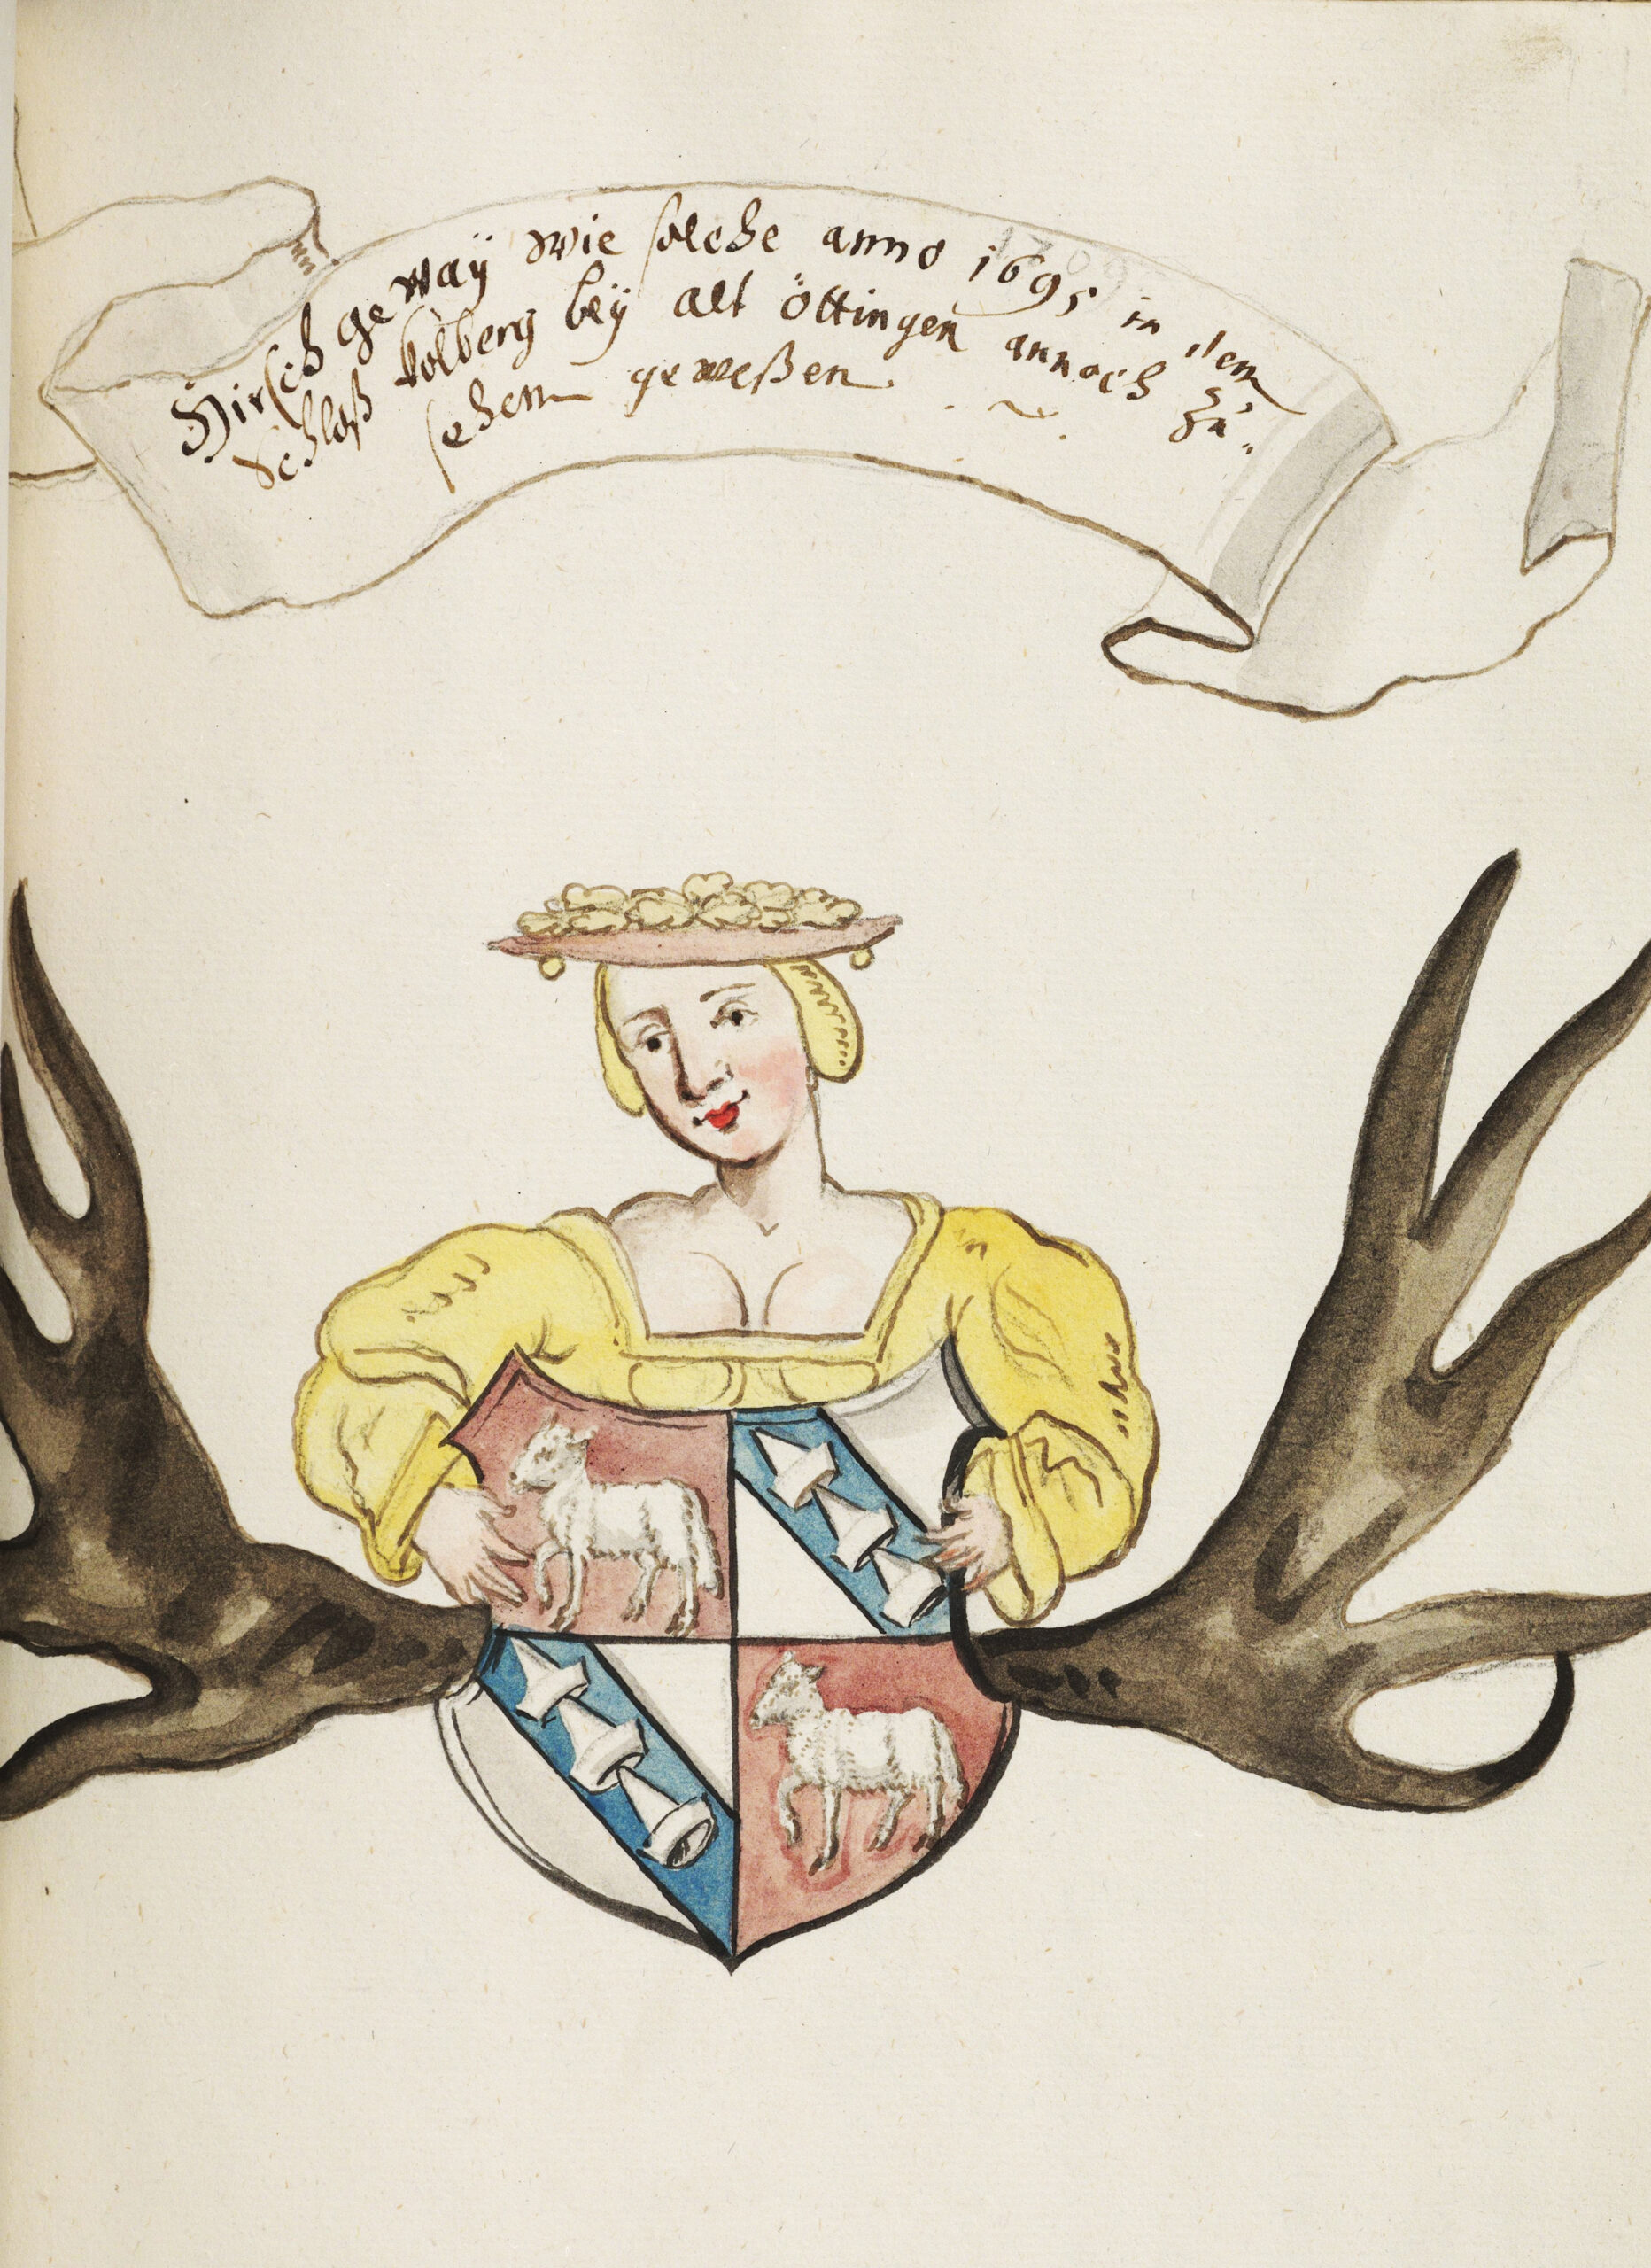 Hirsch geway wie solche anno 1695 in dem
Schloß Kolberg beÿ alt öttingen annoch zu
sehen geweßen.